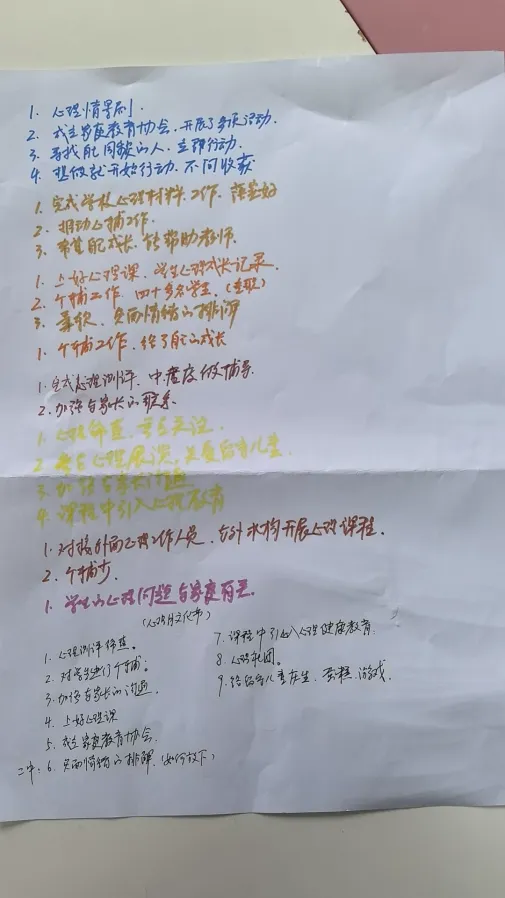 1. 心理情景剧.
2. 成立家庭教育协会.开展了多次活动.
3. 寻找能同频的人.立即行动.
4. 想做就开始行动.不问收获
1. 完成学校心理材料.工作.
2. 推动心辅工作.
3. 希望能成长.能帮助老师.
1. 上好心理课.学生心理成长记录.
2. 个辅工作.四十多名学生.(重职)
3. 负面情绪的排解
1. 个辅工作.给了我的成长
1. 完成心理测评.中度度做辅导.
2. 加强与家长的联系.
1. 心理筛查.重点关注.
2. 考后心理展演,关爱留守儿童.
3. 加强与家长沟通
4. 课程中引入心理教育
1. 对接外面心理工作人员.与外机构开展心理课程.
2. 个辅少.
1. 学生的心理问题与家庭有关.
(心理月文化节)
1. 心理测评筛查.
2. 对学生进行个辅。
3. 加强与家长的沟通
4. 上好心理课
5. 成立家庭教育协会.
二中. 6. 负面情绪的排解.(如何放下)
7. 课程中引入心理健康教育.
8. 心理社团。
9. 给留守儿童庆生.蛋糕.游戏.